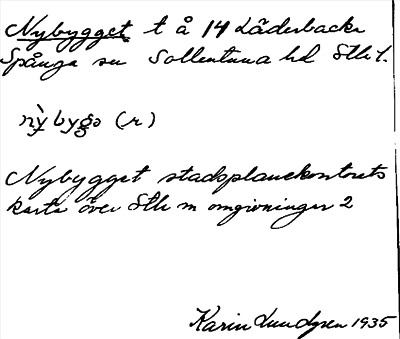 Nybygget t å 14 Läderbacke
Spånga sn Sollentuna hd Sthl.
nỳbygə (r)
Nybygget stadsplanekontorets
karta över Sthlm omgivningar 2
Karin Lundgren 1935